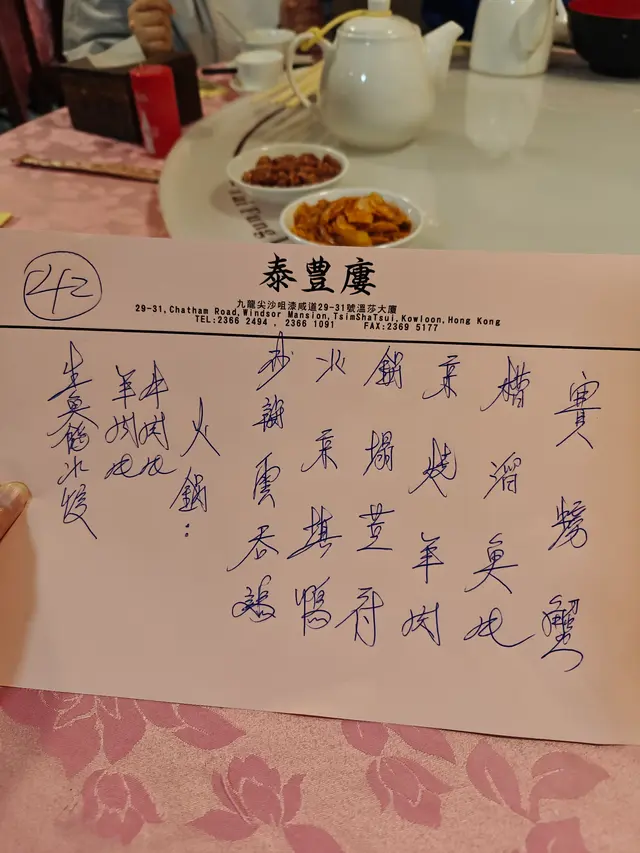 Tai Fung
42
泰豐廔
九龍尖沙咀漆咸道29-31號溫莎大廈
29-31,Chatham Road,Windsor Mansion,TsimShaTsui,Kowloon,Hong Kong
TEL:2366 2494 , 2366 1091 FAX:2369 5177
賽螃蟹
槽溜魚片
京燒羊肉
鍋塌荳付
北京填鴨
砂鍋雲吞雞
火鍋:
牛肉片
羊肉片
生魚